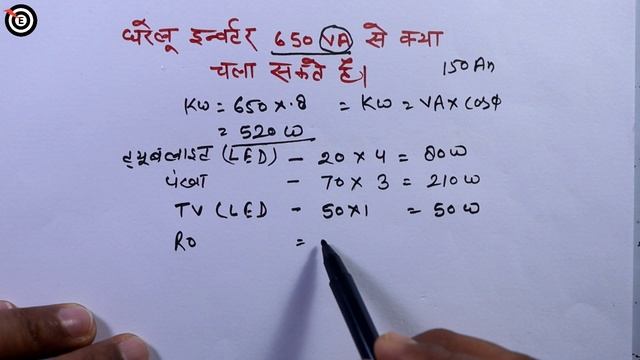 E
घरेलू इन्वर्टर 650 VA से क्या
चला सकते है।
150 AH
KW = 650 × .8 = KW = VA × cosφ
= 520 W
ट्यूबलाइट (LED) - 20 × 4 = 80 W
पंखा - 70 × 3 = 210 W
TV (LED - 50 × 1 = 50 W
RO =